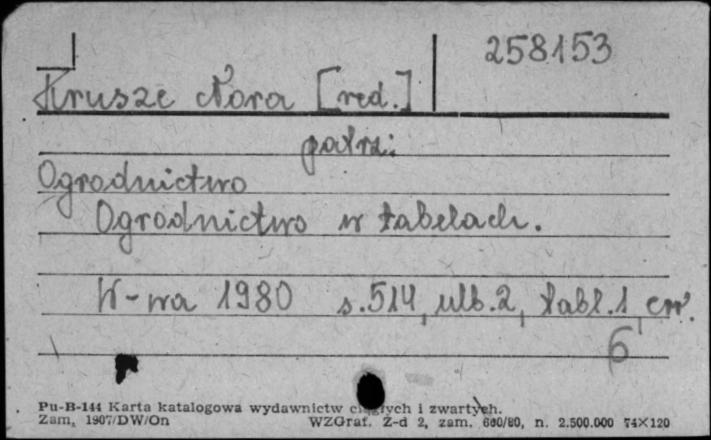 258153
Krusze Nora [red.]
patrz:
Ogrodnictwo
Ogrodnictwo w tabelach.
W-wa 1980 s.514, ulb.2, tabl.1
6
Pu-B-144 Karta katalogowa wydawnictw ciągłych i zwartych.
Zam, 1907/DW/On WZGraf. Z-d 2, zam. 660/80, n. 2.500.000 74×120